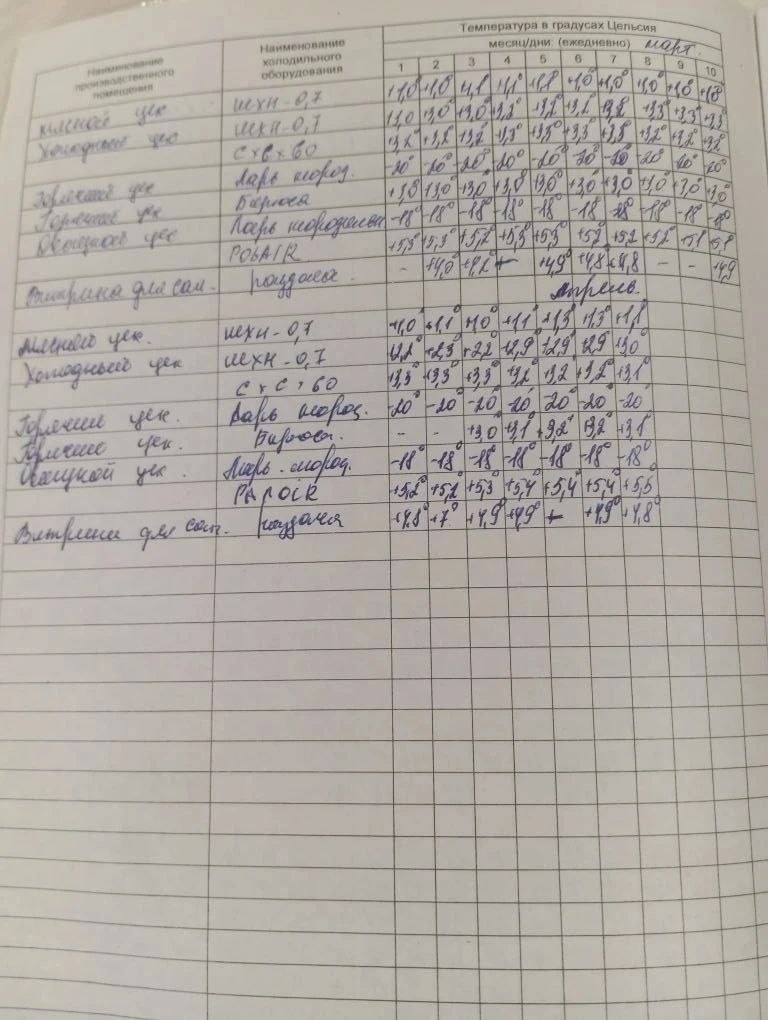 Наименование производственного помещения Наименование холодильного оборудования Температура в градусах Цельсия
месяц/дни: (ежедневно) март.
1 2 3 4 5 6 7 8 9 10
Мясной цех ШХН-0,7 +1,0° +1,0° +1,1° +1,1° +1,0° +1,0° +1,0° +1,0°
Холодный цех ШХН-0,7 +3,0° +3,0° +3,2° +3,2 +3,2 +3,2 +3,3 +3,3° +3,3
СхСх60 +3,2° +3,2° +3,2° +3,3° +3,3° +3,3° +3,2° +3,2° +3,2
Ларь мороз. -20° -20° -20° -20° -20° -20° -20° -20° -20° -20°
Горячий цех Бирюса +3,0° +3,0° +3,0° +3,0° +3,0° +3,0° +3,0° +3,0° +3,0°
Горячий цех Ларь морозильн -18° -18° -18° -18° -18 -18° -18° -18° -18° -18°
Овощной цех POLAIR +5,3° +5,3° +5,2° +5,3 +5,3° +5,2 +5,2 +5,2 +5,1 +5,1
Витрина для сал. раздача - +4,9° +4,8° +4,8 - - +4,9
Апрель.
Мясной цех. ШХН-0,7 +1,0° +1,1° +1,0° +1,1° +1,3° +1,3° +1,1°
Холодный цех ШХН-0,7 +2,2° +2,3° +2,2° +2,9° +2,9° +2,9 +3,0°
СхСх60 +3,3° +3,3° +3,3° +3,2° +3,2 +3,2° +3,1°
Горячий цех. Ларь мороз. -20° -20° -20° -20° -20° -20° -20°
Горячий цех. Бирюса. - - +3,0° +3,1° +3,2° +3,2° +3,1°
Овощной цех. Ларь. мороз. -18° -18° -18° -18° -18° -18° -18°
PAPOIR +5,2° +5,2 +5,3 +5,4 +5,4° +5,4 +5,5
Витрина для сал. раздача +4,8° +7° +4,9° +4,9° +4,9° +4,8°